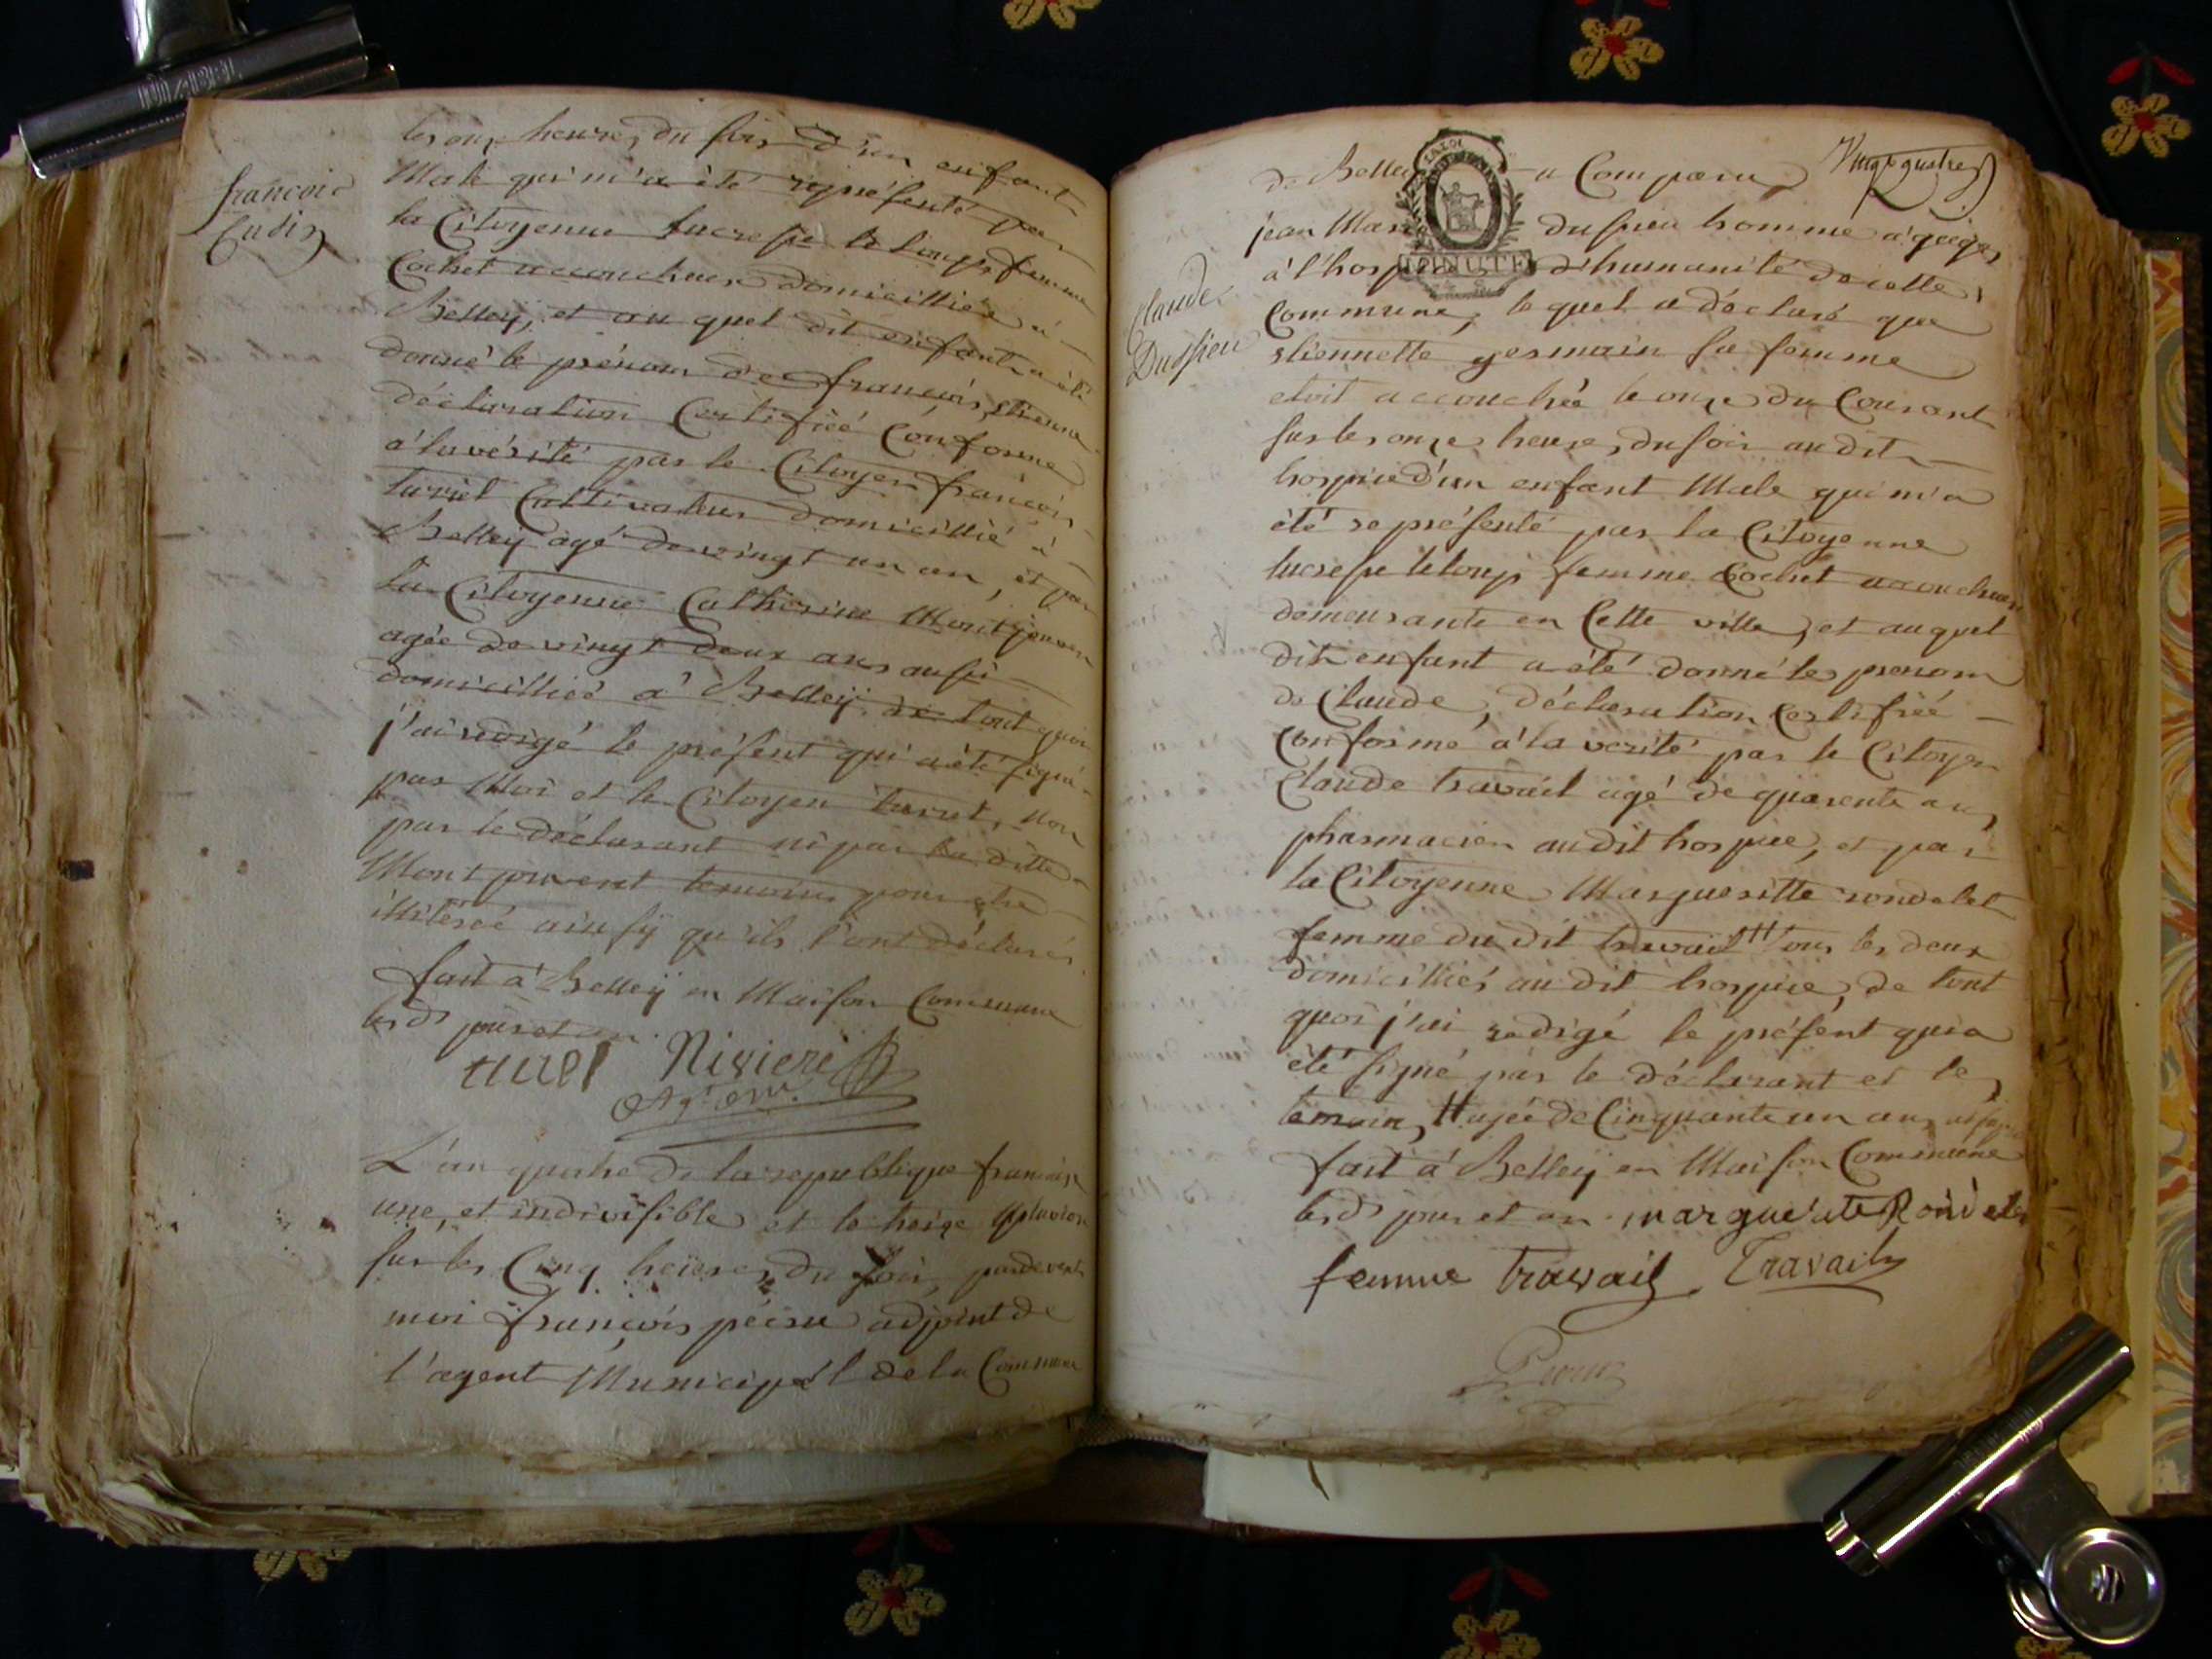 les onze heures du soir d'un enfant
Male qui m'a été représenté par
françois
Cudin
la Citoyenne Lucresse le loup, femme
Cochet accoucheuse domicilliée à
Belley, et au quel dit enfant a été
donné le prénom de françois, Etienne
déclaration Certifiéé Conforme
à la vérité par le Citoyen françois
turrel Cultivateur domicillié à
Belley agé de vingt un an, et par
la Citoyenne Catherine Montjouvent
agée de vingt deux ans aussi
domicilliéé a Belley de tout quoi
j'ai redigé le présent qui a été signé
par Moi et le Citoyen turrel, Non
par le déclarant ni par la ditte
Montjouvent temoins pour etre
illiteréé ainsÿ qu'ils l'ont déclaré.
fait à Belleÿ en Maison Commune
lesds jour et an.
turel Niviere
Agt. Mu.
L'an quatre de la republique francaise
une, et indivisible et le treize pluviose
sur les Cinq heures du soir, pardevant
moi françois picau adjoint de
l'agent Municipal de la Commune
Vingt quatre
de Belley a Comparu
jean Marie dussieu homme a gages
à l'hospice d'humanité de cette
MINUTE
Claude
Dussieu
Commune, le quel a déclaré que
etiennette germain sa femme
etoit accouchéé le onze du Courant
sur les onze heures du soir au dit
hospice d'un enfant Male qui m'a
été représenté par la Citoyenne
lucresse leloup femme Cochet accoucheuse
demeurante en Cette ville, et auquel
dit enfant a été donné les prenom
de Claude, déclaration Certifiéé
Conforme à la verité par le Citoyen
Claude travail agé de quarente ans
pharmacien au dit hospice, et par
la Citoyenne Marguerite rondelet
femme du dit travail # tous les deux
domicilliés au dit hospice, de tout
quoi j'ai redigé le présent qui a
été signé par le déclarant et les
temoins, # agée de Cinquante un ans
fait à Belleÿ en Maison Commune
lesds jour et an. marguerite Rondelet
femme travail. Travail